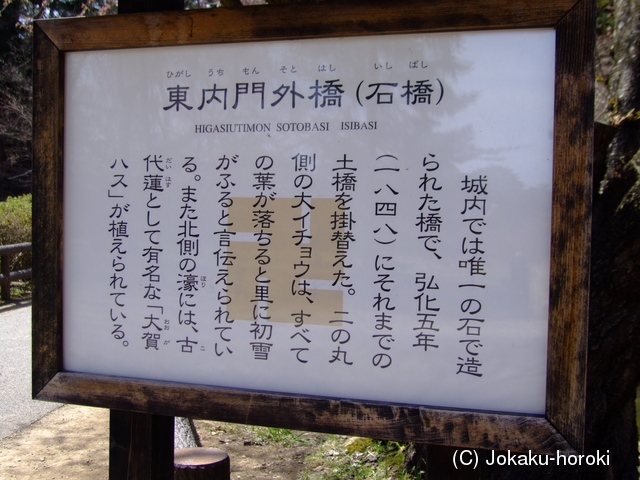 ひがし うち もん そと はし いし ばし
東内門外橋(石橋)
HIGASIUTIMON SOTOBASI ISIBASI
城内では唯一の石で造
られた橋で、弘化五年
(一八四八)にそれまでの
土橋を掛替えた。二の丸
側の大イチョウは、すべて
の葉が落ちると里に初雪
がふると言伝えられてい
る。また北側の濠には、古
ほり こ
代蓮として有名な「大賀
だい はす おお が
ハス」が植えられている。
(C) Jokaku-horoki